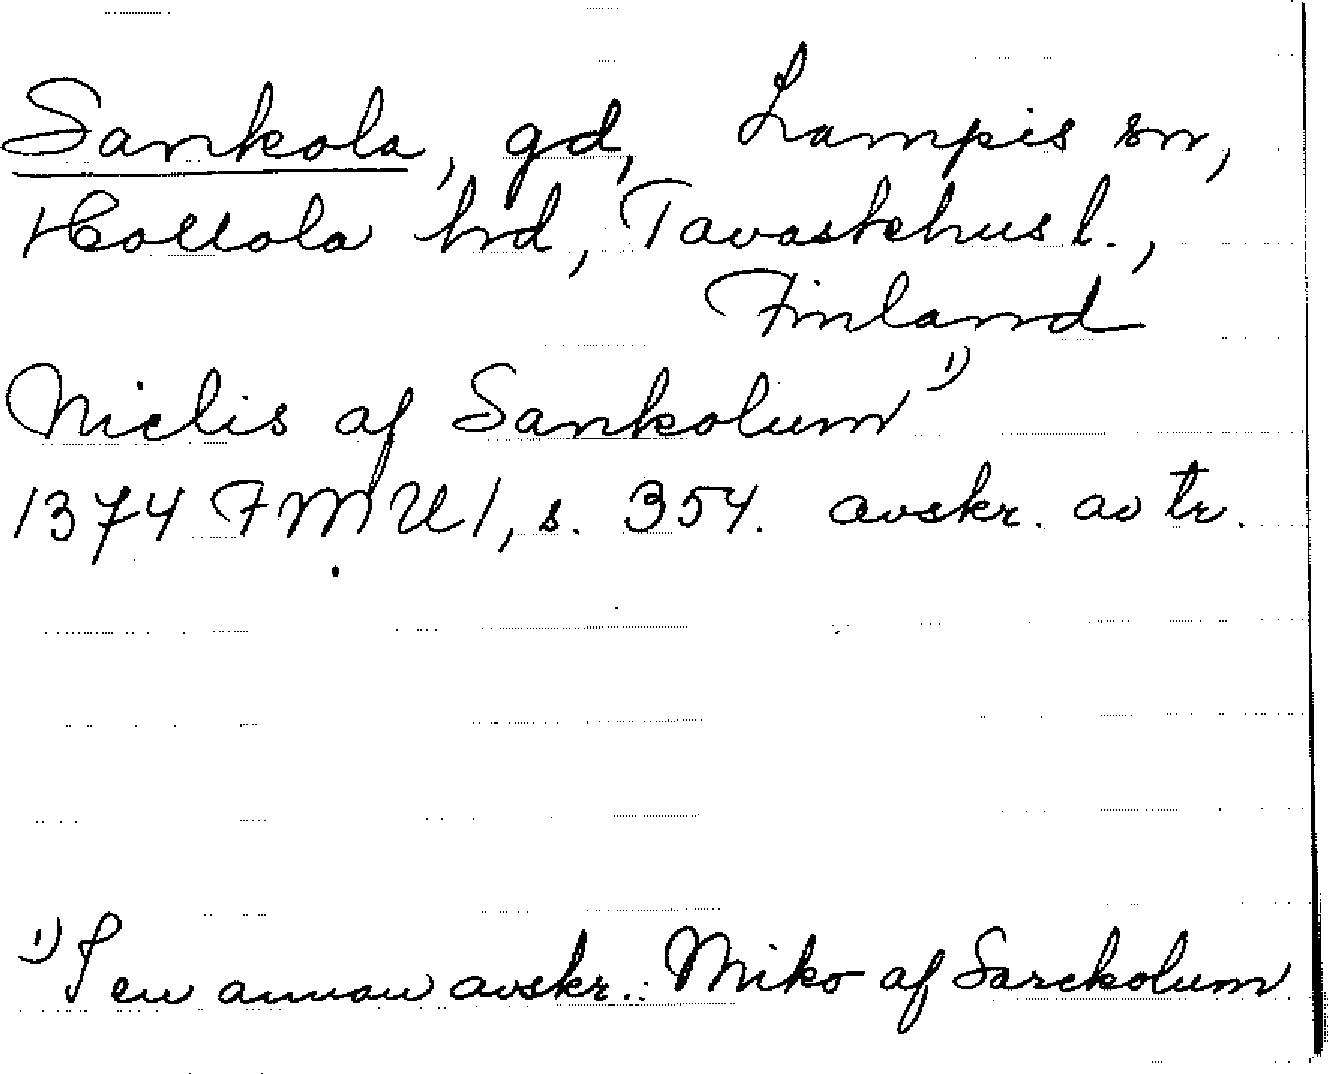 Sankola, gd, Lampis sn,
Hollola hrd, Tavastehus l.,
Finland
Niclis af Sankolum 1)
1374 FMU 1, s. 354. avskr. av tr.
1) I en annan avskr.: Miko af Sarckolum